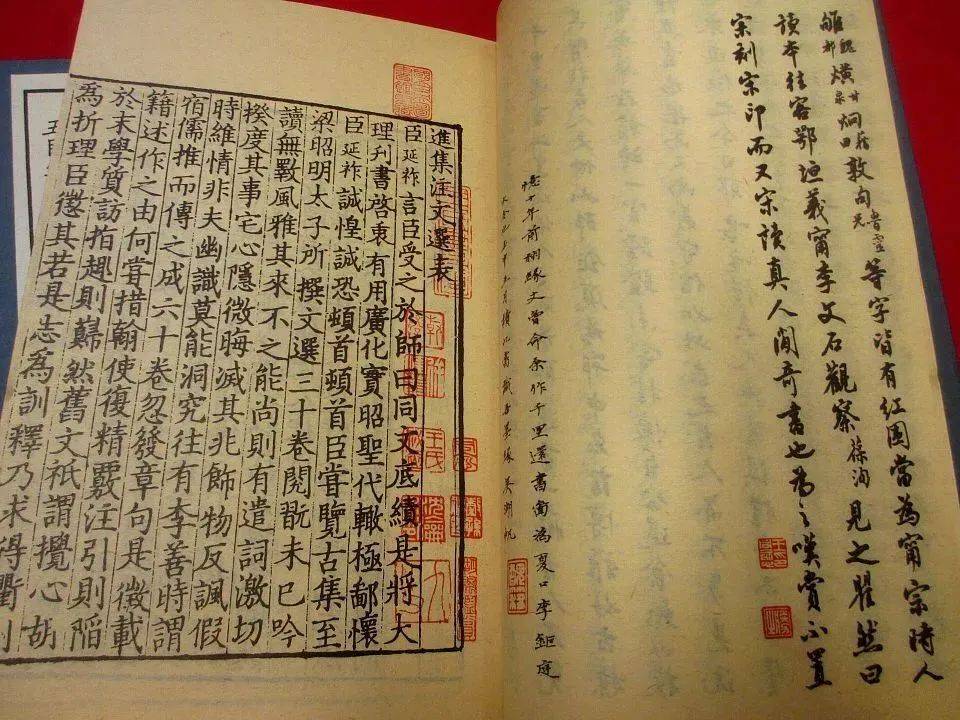 雖魏郁横甘泉炯藉田敦句魯靈光等字皆有紅圈當為甯宗時人
讀本往客鄂垣義甯李文石觀察葆洵見之瞿然曰
宋刻宋印而又宋讀真人間奇書也為之嘆賞不置
憶十年前栩緣丈曾命余作千里還書圖為夏口李鉅庭
五月吳湖帆
進集注文選表
臣延祚言臣受之於師曰同文底績是將大
理刊書啓衷有用廣化實昭聖代輒極鄙懷
臣延祚誠惶誠恐頓首頓首臣嘗覽古集至
梁昭明太子所撰文選三十卷閱翫未已吟
讀無斁風雅其來不之能尚則有遣詞激切
揆度其事宅心隱微晦滅其兆飾物反諷假
時維情非夫幽識莫能洞究往有李善時謂
宿儒推而傳之成六十卷忽發章句是徵載
籍述作之由何嘗措翰使復精覈注引則陷
於末學質訪指趣則巋然舊文祇謂攪心胡
為折理臣懲其若是志為訓釋乃求得衢